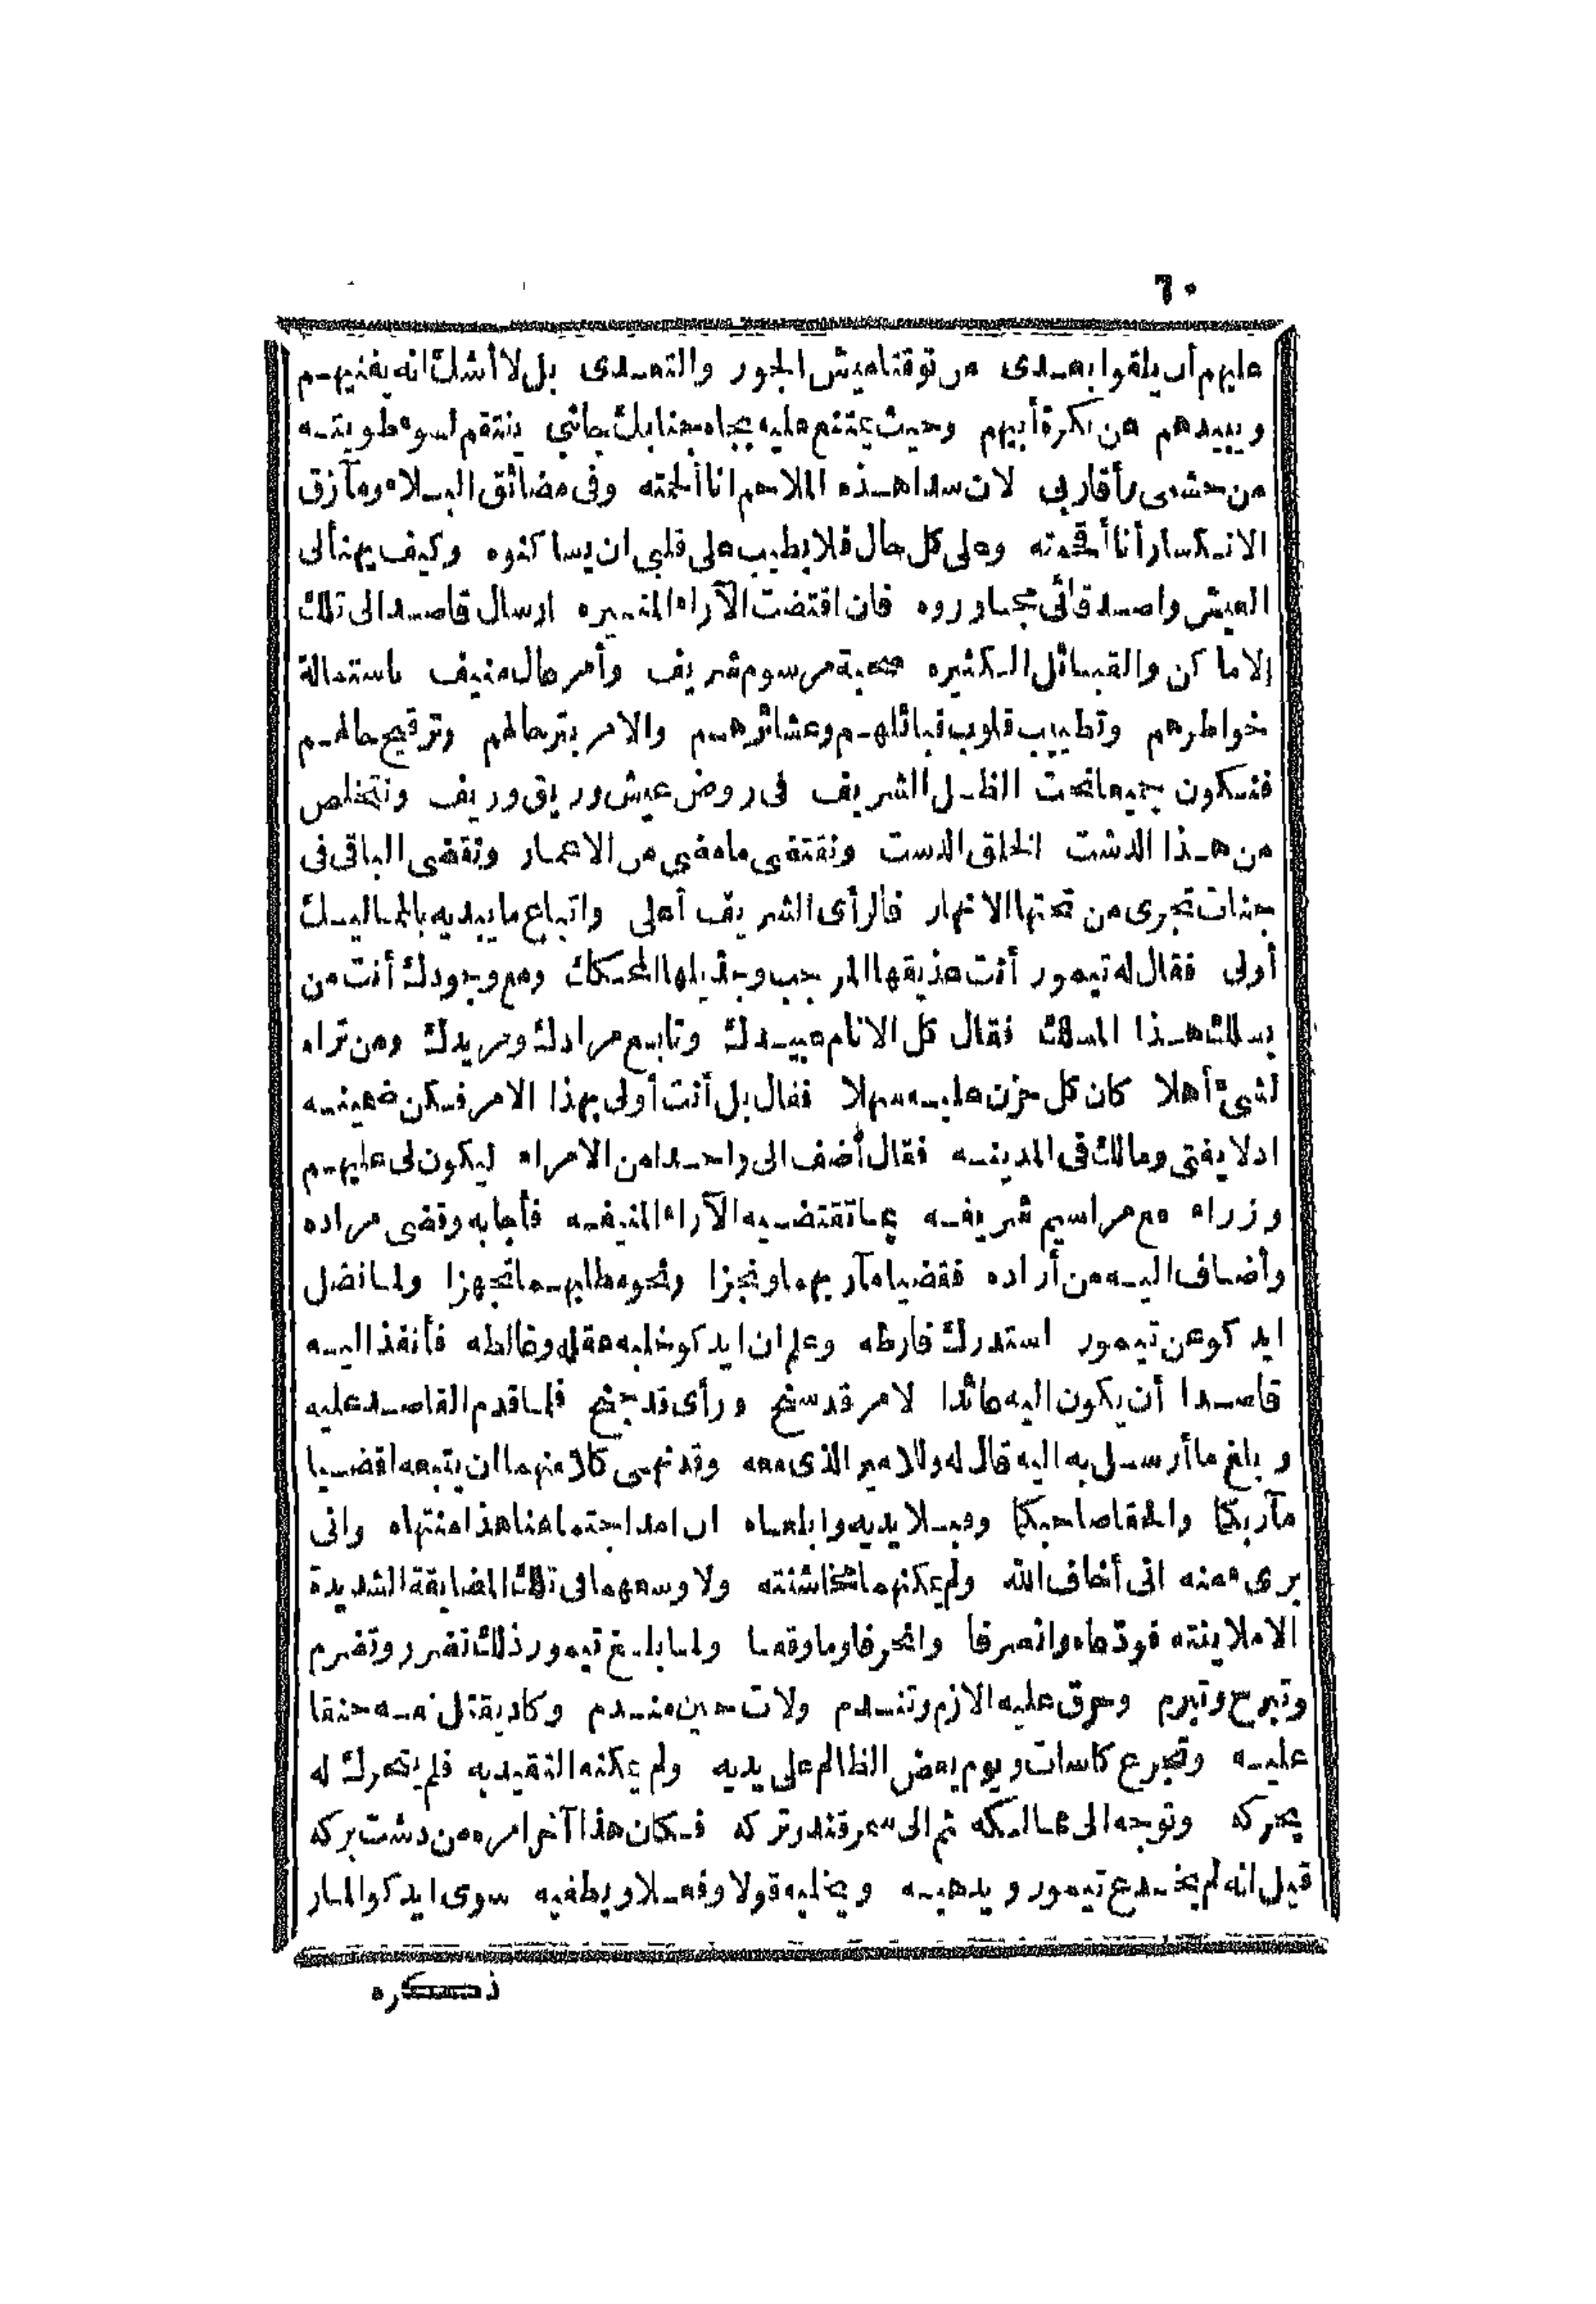 ٦٠
عليهم أن يلقوا بعدى من توقتاميش الجور والتعدى بل لا أشك انه يفنيهم
ويبيدهم عن بكرة أبيهم وحيث يمتنع عليه بجاه جنابك جانبي ينتقم لسوء طويته
من حشمى وأقاربى لان سدا هذه الملاحم انا ألحمته وفى مضائق البلاء ومآزق
الانكسار أنا أقحمته وعلى كل حال فلا يطيب على قلبي ان يساكنوه وكيف يهنألى
العيش واصدقائى مجاوروه فان اقتضت الآراء المنيره ارسال قاصد الى تلك
الاماكن والقبائل الكثيره صحبة مرسوم شريف وأمر عال منيف باستمالة
خواطرهم وتطييب قلوب قبائلهم وعشائرهم والامر بترحالهم وترقيح حالهم
فنكون جميعا تحت الظل الشريف فى روض عيش وريق وريف ونتخلص
من هذا الدشت الخلق الدست ونقتضى ما مضى من الاعمار ونقضى الباقى فى
جنات تجرى من تحتها الانهار فالرأى الشريف أعلى واتباع ما يبديه بالمماليك
أولى فقال له تيمور أنت عذيقها المرجب وجذيلها المحكك ومع وجودك أنت من
يسلك هذا المسلك فقال كل الانام عبيدك وتابع مرادك ومريدك ومن تراه
لشئ أهلا كان كل حزن عليه سهلا فقال بل أنت أولى بهذا الامر فكن ضمينه
اد لا يفتى ومالك فى المدينه فقال أضف الى واحدا من الامراء ليكون لى عليهم
وزراء مع مراسيم شريفه بما تقتضيه الآراء المنيفه فأجابه وقضى مراده
وأضاف اليه من أراده فقضيا مآربهما ونجزا ونحو مطلبهما تجهزا ولما فصل
ايدكو عن تيمور استدرك فارطه وعلم ان ايدكو خلبه عقله وغالطه فأنفذ اليه
قاصدا أن يكون اليه عائدا لامر قد سنح ورأى قد جنح فلما قدم القاصد عليه
وبلغ ما أرسل به اليه قال له وللامير الذى معه وقد نهى كلا منهما ان يتبعه اقضيا
مآربكما والحقا صاحبكما وقبلا يديه وابلغاه ان امد اجتماعنا هذا منتهاه وانى
برى ء منه انى أخاف الله ولم يمكنهما مخاشنته ولا وسعهما فى تلك المضايقة الشديدة
الا ملاينته فودعاه وانصرفا وانحرفا وما وقفا ولما بلغ تيمور ذلك تضرر وتضرم
وتبرح وتبرم وحرق عليه الازم وتندم ولات حين مندم وكاد يقتل نفسه حنقا
عليه وتجرع كاسات ويوم يعض الظالم على يديه ولم يمكنه التقيد به فلم يتحرك له
بحركه وتوجه الى ممالكه ثم الى سمرقند وتركه فكان هذا آخر امره من دشت بركه
قيل انه لم يخدع تيمور ويدهيه ويخلبه قولا وفعلا ويطغيه سوى ايدكو المار
ذكره